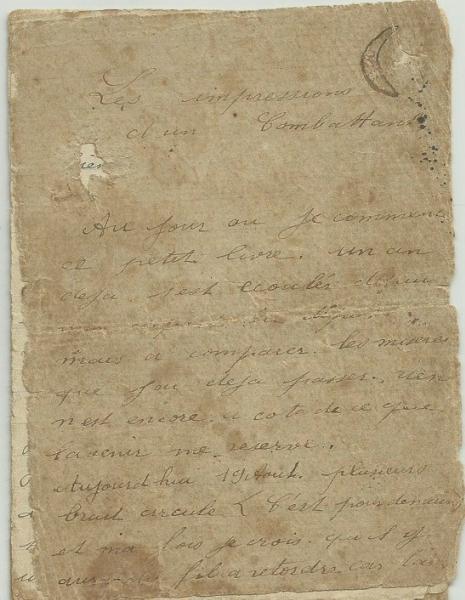 Les impressions
d'un Combattant
Au jour ou Je commence
ce petit livre. un an
deja s'est écoulés depuis
mon
mais a comparer. les misères
que j'ai deja passer, rien
n'est encore. a coté de ce que
l'avenir me reserve.
Aujourdhui 19 Aout. plusieurs
bruit circule C'est pour demain
et ma fois je crois. qu'il y
aura du fil a retordre car